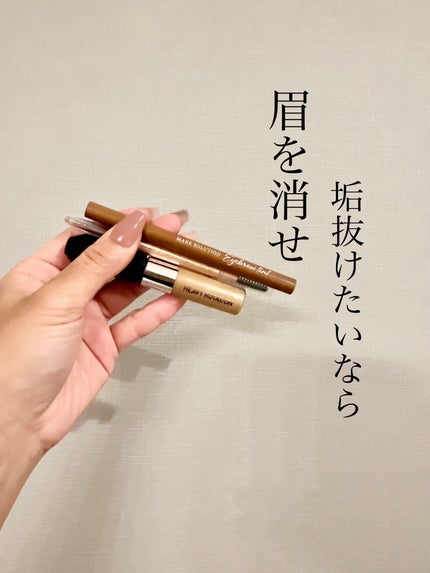 垢抜けたいなら
眉を消せ
MAKE SOLUTION Eyebrow Tint
HEAVY ROTATION